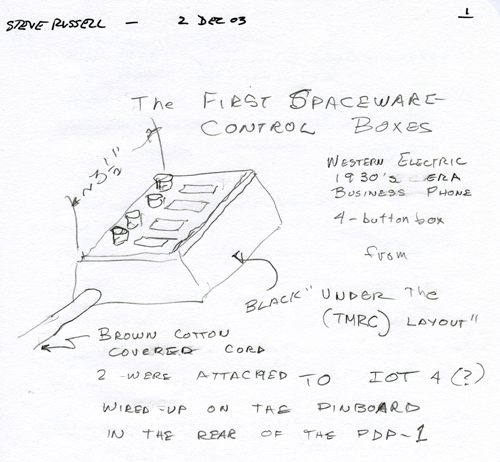 STEVE RUSSELL — 2 DEC 03
1
The FIRST SPACEWARE-
CONTROL BOXES
~3½"
WESTERN ELECTRIC
1930's ERA
BUSINESS PHONE
4-button box
from
"UNDER The
(TMRC) LAYOUT"
BLACK
BROWN COTTON
COVERED CORD
2 WERE ATTACHED TO IOT 4 (?)
WIRED-UP ON THE PINBOARD
IN THE REAR OF THE PDP-1